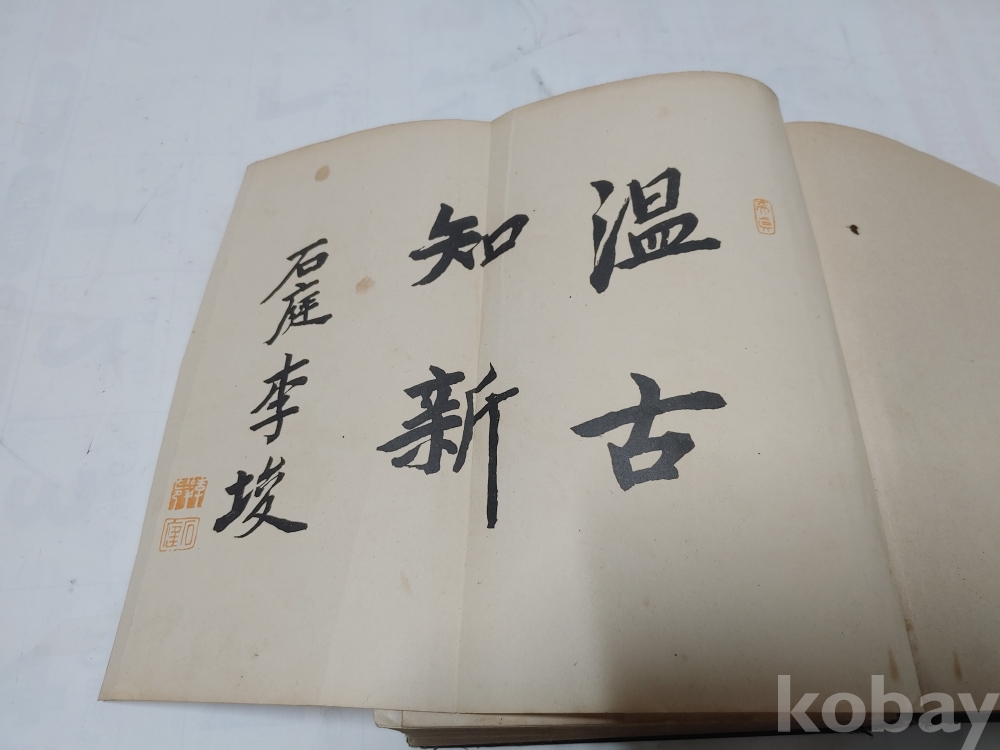 温古
知新
石庭李埈
石庭
kobay